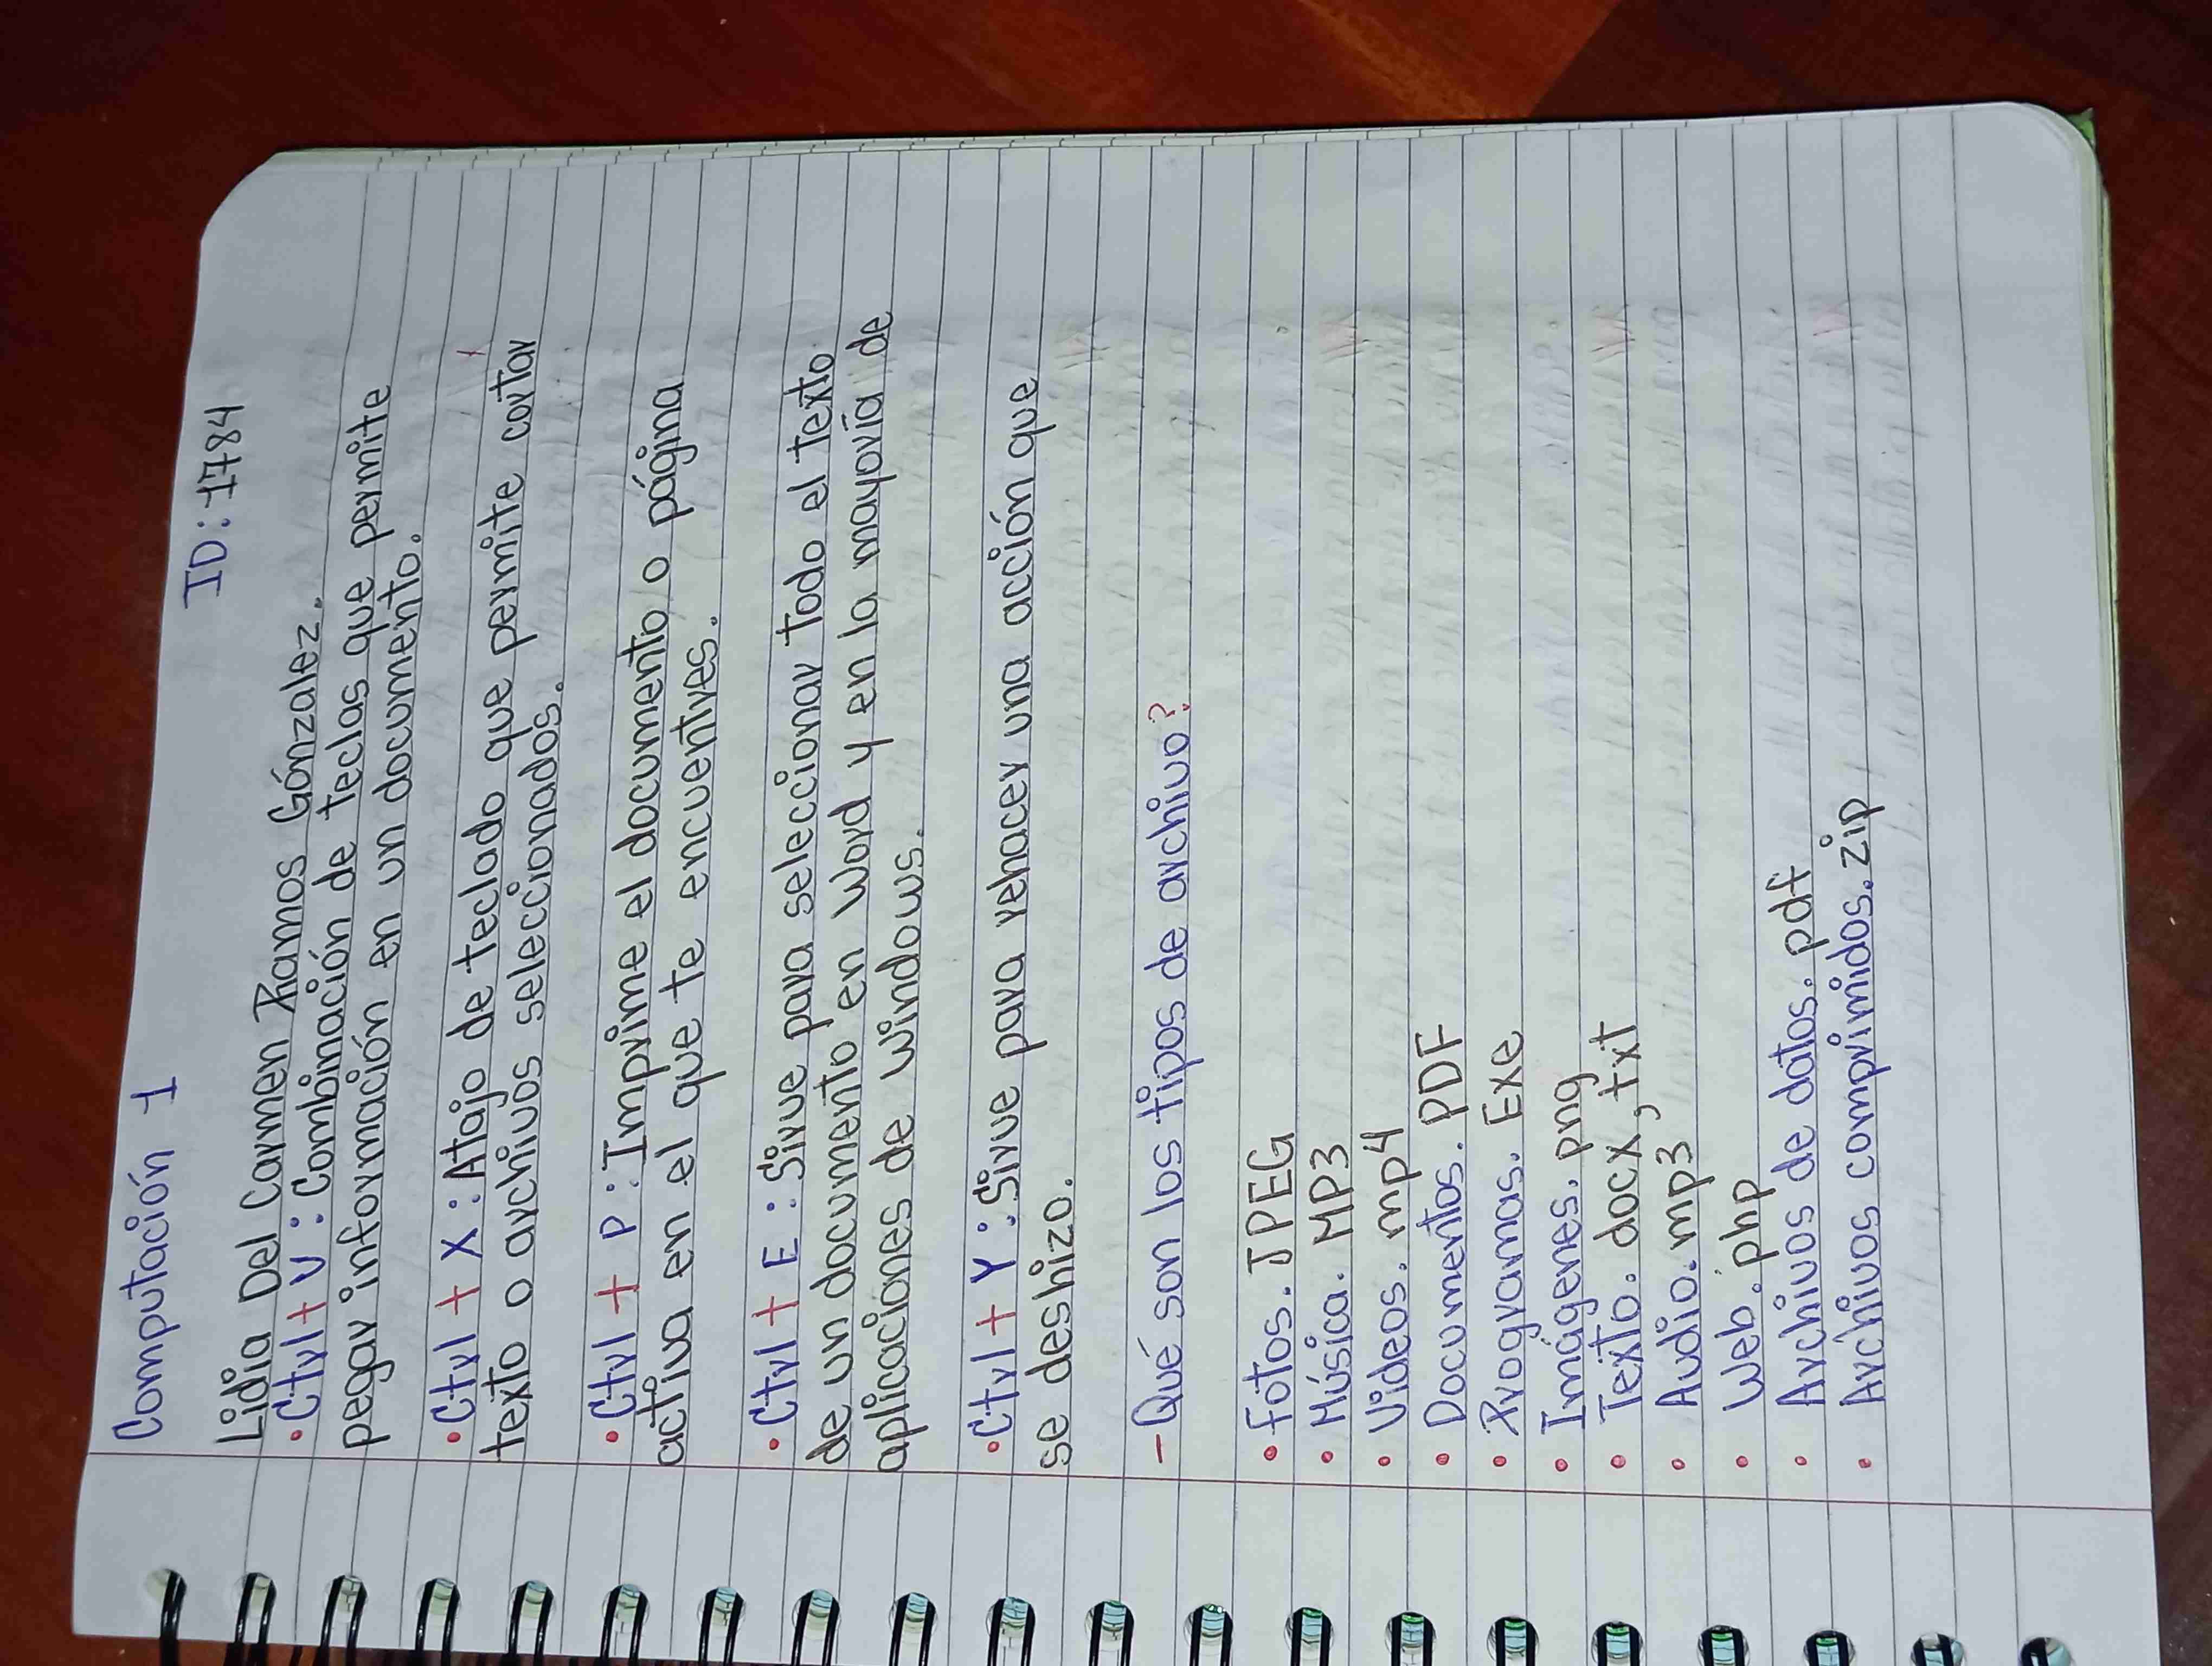 Computación 1
ID:1784
Lidia Del Carmen Ramos Gónzalez.
• Ctrl + V : Combinación de teclas que permite
pegar información en un documento.
• Ctrl + X : Atajo de teclado que permite cortar
texto o archivos seleccionados.
• Ctrl + P : Imprime el documento o página
activa en el que te encuentres.
• Ctrl + E : Sirve para seleccionar todo el texto
de un documento en Word y en la mayoría de
aplicaciones de windows.
• Ctrl + Y : Sirve para rehacer una acción que
se deshizo.
- Qué son los tipos de archivo?
• Fotos. JPEG
• Música. MP3
• Videos. mp4
• Documentos. PDF
• Programas. Exe
• Imágenes. png
• Texto. docx, txt
• Audio. mp3
• Web. php
• Archivos de datos. pdf
• Archivos comprimidos. zip